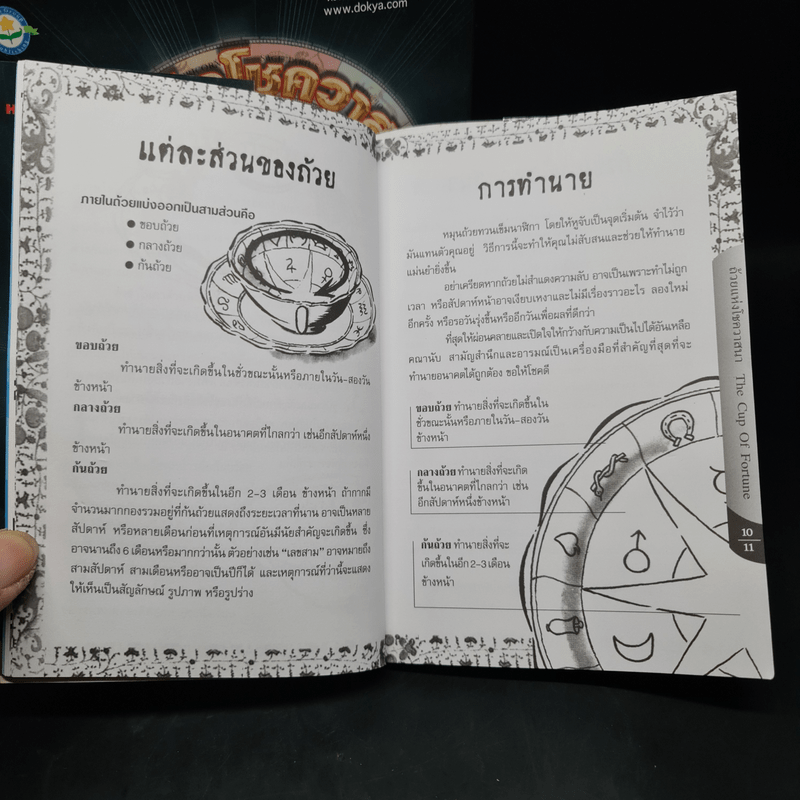 www.dokya.com
โชควาส
แต่ละส่วนของถ้วย
ภายในถ้วยแบ่งออกเป็นสามส่วนคือ
● ขอบถ้วย
● กลางถ้วย
● ก้นถ้วย
ขอบถ้วย
ทำนายสิ่งที่จะเกิดขึ้นในชั่วขณะนั้นหรือภายในวัน-สองวัน
ข้างหน้า
กลางถ้วย
ทำนายสิ่งที่จะเกิดขึ้นในอนาคตที่ไกลกว่า เช่นอีกสัปดาห์หนึ่ง
ข้างหน้า
ก้นถ้วย
ทำนายสิ่งที่จะเกิดขึ้นในอีก 2-3 เดือน ข้างหน้า ถ้ากากมี
จำนวนมากกองรวมอยู่ที่ก้นถ้วยแสดงถึงระยะเวลาที่นาน อาจเป็นหลาย
สัปดาห์ หรือหลายเดือนก่อนที่เหตุการณ์อันมีนัยสำคัญจะเกิดขึ้น ซึ่ง
อาจนานถึง 6 เดือนหรือมากกว่านั้น ตัวอย่างเช่น “เลขสาม” อาจหมายถึง
สามสัปดาห์ สามเดือนหรืออาจเป็นปีก็ได้ และเหตุการณ์ที่ว่านี้จะแสดง
ให้เห็นเป็นสัญลักษณ์ รูปภาพ หรือรูปร่าง
การทำนาย
หมุนถ้วยทวนเข็มนาฬิกา โดยให้หูจับเป็นจุดเริ่มต้น จำไว้ว่า
มันแทนตัวคุณอยู่ วิธีการนี้จะทำให้คุณไม่สับสนและช่วยให้ทำนาย
แม่นยำยิ่งขึ้น
อย่าเครียดหากถ้วยไม่สำแดงความลับ อาจเป็นเพราะทำไม่ถูก
เวลา หรือสัปดาห์หน้าอาจเงียบเหงาและไม่มีเรื่องราวอะไร ลองใหม่
อีกครั้ง หรือรอวันรุ่งขึ้นหรืออีกวันเพื่อผลที่ดีกว่า
ที่สุดให้ผ่อนคลายและเปิดใจให้กว้างกับความเป็นไปได้อันเหลือ
คณานับ สามัญสำนึกและอารมณ์เป็นเครื่องมือที่สำคัญที่สุดที่จะ
ทำนายอนาคตได้ถูกต้อง ขอให้โชคดี
ขอบถ้วย ทำนายสิ่งที่จะเกิดขึ้นใน
ชั่วขณะนั้นหรือภายในวัน-สองวัน
ข้างหน้า
กลางถ้วย ทำนายสิ่งที่จะเกิด
ขึ้นในอนาคตที่ไกลกว่า เช่น
อีกสัปดาห์หนึ่งข้างหน้า
ก้นถ้วย ทำนายสิ่งที่จะ
เกิดขึ้นในอีก 2-3 เดือน
ข้างหน้า
ถ้วยแห่งโชควาสนา The Cup Of Fortune
10
11